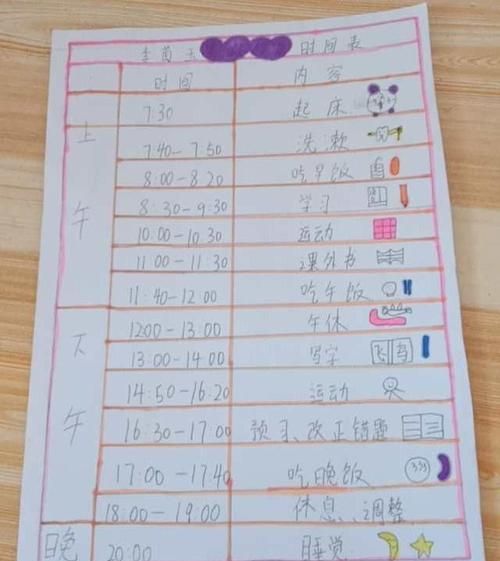 李 玉 时间表
时间 内容
上午
7:30 起床
7:40-7:50 洗漱
8:00-8:20 吃早饭
8:30-9:30 学习
10:00-10:30 运动
11:00-11:30 课外书
11:40-12:00 吃午饭
下午
1200-13:00 午休
13:00-14:00 写字 飞鸟
14:50-16:20 运动
16:30-17:00 预习、改正错题
17:00-17:40 吃晚饭
18:00-19:00 休息、调整
晚 20:00 睡觉